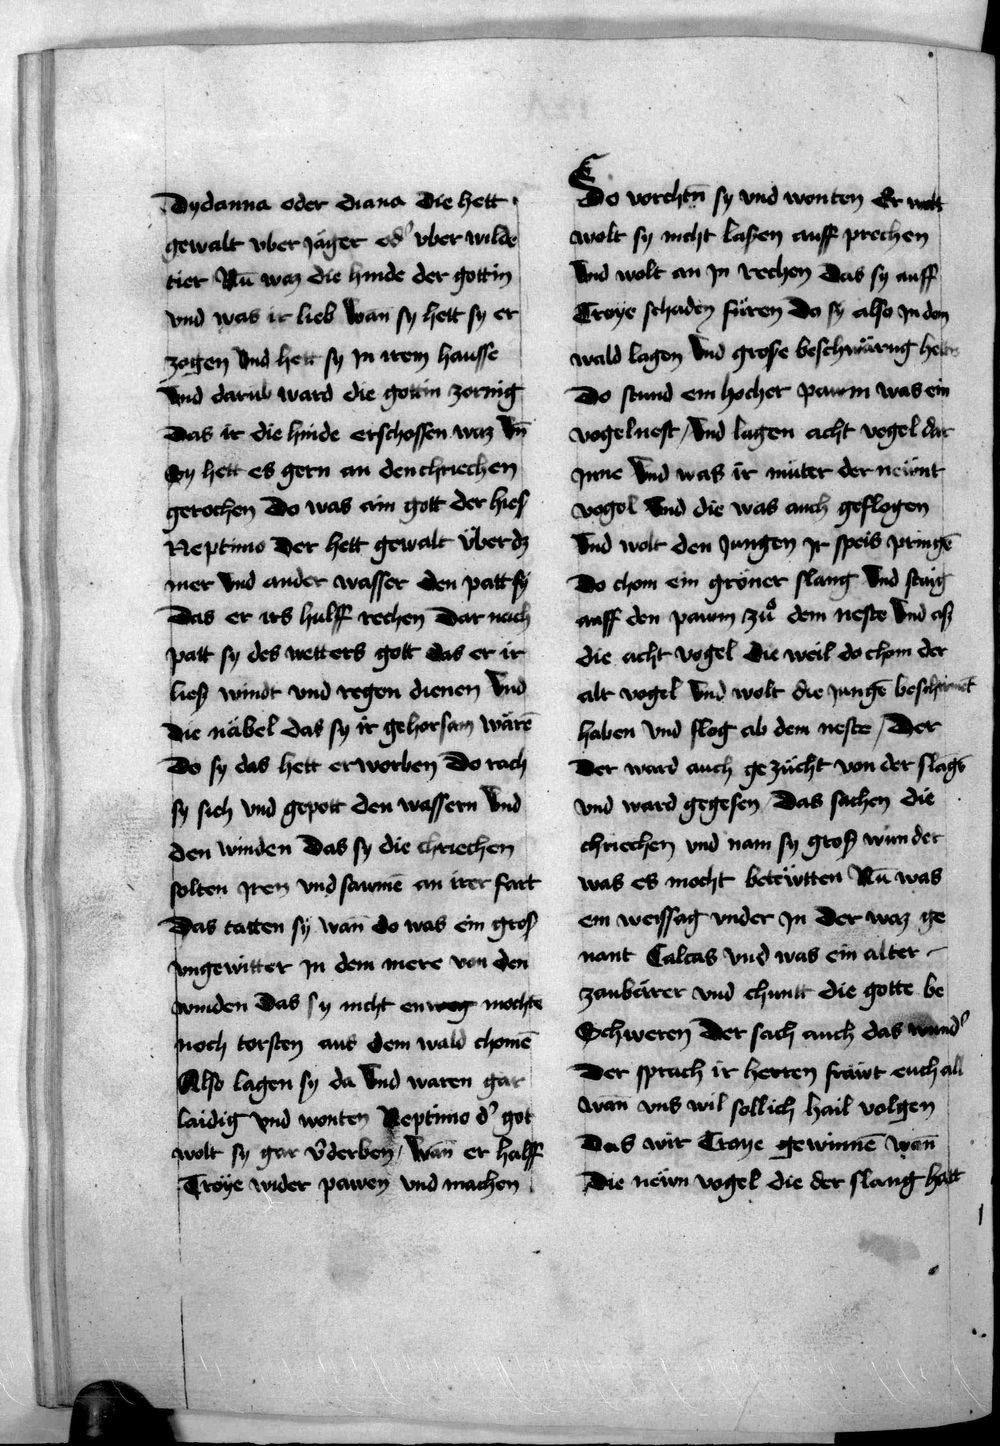 Dydanna oder diana die hett
gewalt vber jäger od᾽ vber wilde
tier Nū waz die hinde der gottin
vnd was ir lieb wan̄ sy hett sy er
zogen Vnd hett sy jn irem hausse
Vnd darūb ward die gottin zornig
Das ir die hinde erschossen waz Vn̄
Sy hett es gern an den chriechen
gerochen Do was ain gott der hies
Neptimo Der hett gewalt Vͤber dz
mer Vnd ander wasser den patt sy
Das er irs hulff rechen Dar nach
patt sy des wetters gott das er ir
liess windt vnd regen dienen Vnd
die näbel das sy ir gehorsam wärē
Do sy das hett erworben Do rach
sy sich vnd gepott den wassern Vnd
den winden Das sy die chriechen
solten jren vnd sawmē an irer fart
Das tatten sy wan̄ do was ein gross
vngewitter jn dem mere von den
winden Das sy nicht enweg mochte
noch torsten aus dem wald chomē
Also lagen sy da Vnd waren gar
laidig Vnd wonten Neptimo d᾽ got
wolt sy gar v᾽derben / Wan̄ er halff
Tröye wider pawen vnd machen
Do vorchtn̄ sy vnd wonten Er
wolt sy nicht laßen auff prechen
Vnd wolt an jn rechen Das sy auff
Troye schaden füren Do sy also jn dem
wald lagen Vnd grose beschwärug
Do stund ein hocher pawm was ein
vogelnest / Vnd lagen acht vogel dar
jnne Vnd was ir müter der newnt
vogel Vnd die was auch geflogen
Vnd wolt den jungen jr speis pringē
Do chom ein gröner slang Vnd staig
auff den pawm zů dem neste Vnd aß
die acht vogel die weil do chom der
alt vogel Vnd wolt die jungē
haben Vnd flog ab dem neste / Der
Der ward auch gezücht von der slāgē
vnd ward gegesen / Das sachen die
chriechen vnd nam sy gross wunder
was es mocht betewtten Nū was
ein weissag vnder jn Der waz ge
nant Calcas Vnd was ein alter
zaubärer vnd chuntt die gotte be
Schweren Der sach auch das wund᾽
Der sprach ir herren fräwt euch all
wan̄ vns wil sollich hail volgen
Das wir Troye gewinnē wan̄
Die newn vogel die der slang hatt